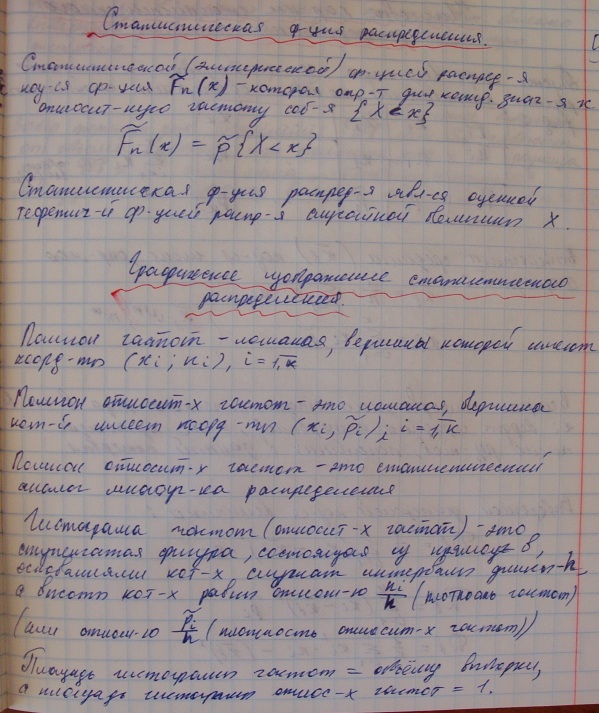 Статистическая ф-ция распределения.
Статистической (эмпирической) ф-цией распред-я
наз-ся ф-ция F̃n(x) - которая опр-т для кажд. знач-я x
относит-ную частоту соб-я {X < x}
F̃n(x) = p̃{X < x}
Статистическая ф-ция распред-я явл-ся оценкой
теоретич-й ф-цией распр-я случайной величины X.
Графическое изображение статистического
распределения.
Полигон частот - ломаная, вершины которой имеют
коорд-ты (xi; ni), i = 1,k
Полигон относит-х частот - это ломаная, вершина
кот-й имеет коорд-ты (xi, p̃i); i = 1,k
Полигон относит-х частот - это статистический
аналог многоуг-ка распределения
Гистограма частот (относит-х частот) - это
ступенчатая фигура, состоящая из прямоуг-в,
основаниями кот-х служат интервалы длины - h,
а высоты кот-х равны отнош-ю ni/h (плотность частот)
(или отнош-ю p̃i/h (плотность относит-х частот))
Площадь гистограмы частот = объёму выборки,
а площадь гистограмы относ-х частот = 1.